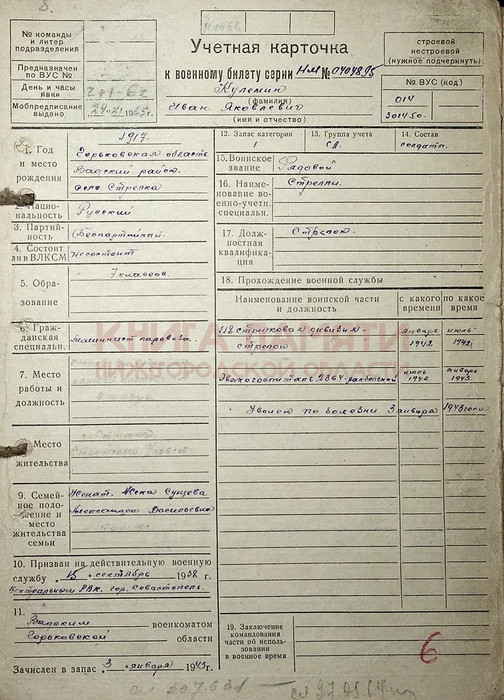 № команды
и литер
подразделения
Предназначен
по ВУС №
День и часы
явки
Мобпредписание
выдано
Учетная карточка
к военному билету серии НМ № 0404895
Кулемин
(фамилия)
Иван Яковлевич
(имя и отчество)
строевой
нестроевой
(нужное подчеркнуть)
№ ВУС (код)
014
1. Год
и место
рождения
1917.
Горьковская область
Вадский район
село Стрелка
2. Нацио-
нальность
Русский
3. Партий-
ность
Беспартийный.
4. Состоит
ли в ВЛКСМ
Не состоит
5. Обра-
зование
7 классов.
6. Граж-
данская
специальн.
Машинист паровоза
7. Место
работы и
должность
Место
жительства
9. Семей-
ное поло-
жение и
место
жительства
семьи
Женат. Жена Сущева
Александра Васильевна
10. Призван на действительную военную
службу „15 „ сентябрь 1938 г.
Центральным РВК. гор. Севастополь.
11.
Вадским военкоматом
Горьковской области
Зачислен в запас „ 3 „ января 1943 г.
12. Запас категории
1
13. Группа учета
СА.
14. Состав
солдаты.
15. Воинское
звание
Рядовой
16. Наиме-
нование во-
енно-учетн.
специальн.
Стрелки.
17. Долж-
ностная
квалифика-
ция
Стрелок.
18. Прохождение военной службы
Наименование воинской части
и должность
с какого
времени
по какое
время
стрелковая дивизия
стрелок
январь
1942
июль
1942
Эвакогоспиталь 2864 - раненый
июль
1942
январь
1943
Уволен по болезни 3 января 1943 года
19. Заключение
командования
части об исполь-
зовании
в военное время
6
КНИГА ПАМЯТИ
НИЖЕГОРОДСКОЙ ОБЛАСТИ